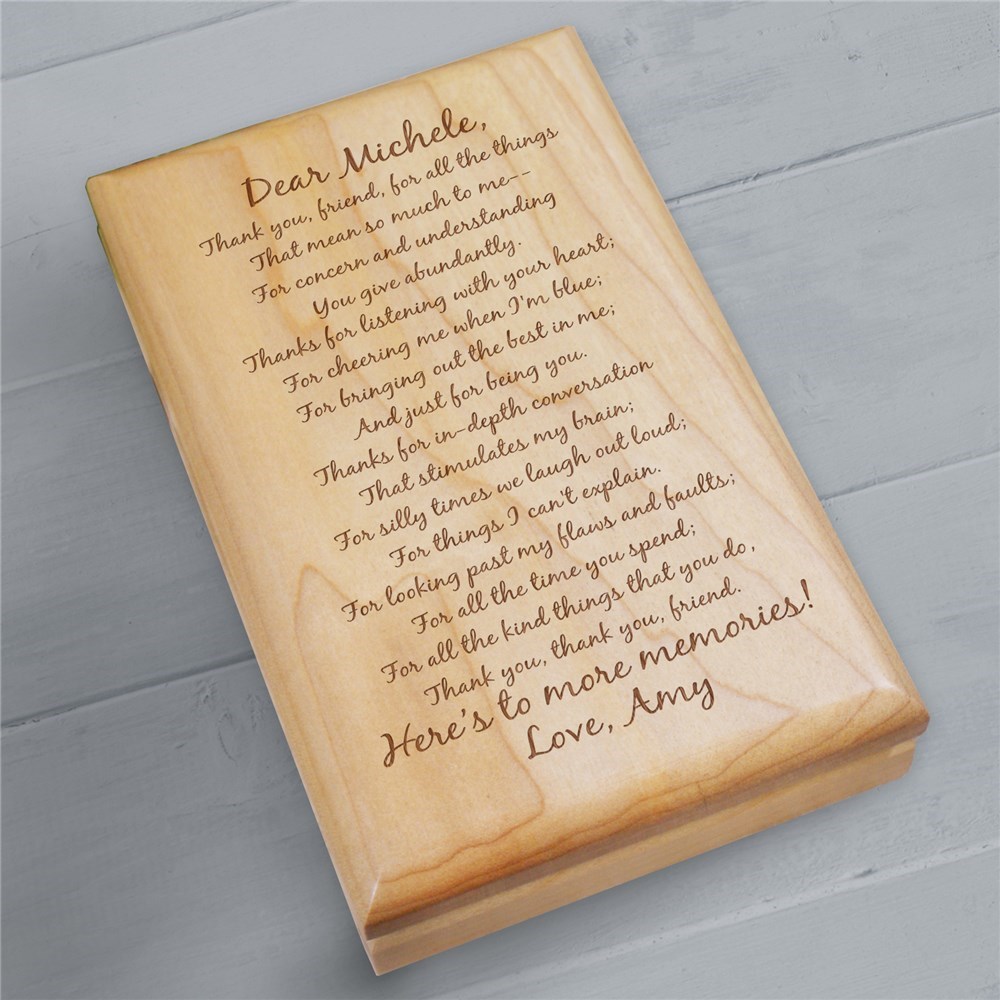 Dear Michele,
Thank you, friend, for all the things
That mean so much to me--
For concern and understanding
You give abundantly.
Thanks for listening with your heart;
For cheering me when I'm blue;
For bringing out the best in me;
And just for being you.
Thanks for in-depth conversation
That stimulates my brain;
For silly times we laugh out loud;
For things I can't explain.
For looking past my flaws and faults;
For all the time you spend;
For all the kind things that you do,
Thank you, thank you, friend.
Here's to more memories!
Love, Amy